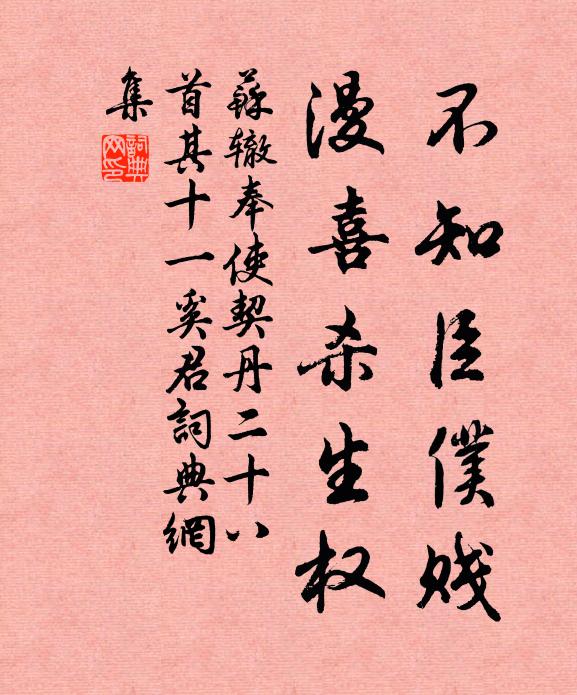 不知臣僕贱
漫喜杀生权
蘇辙奉使契丹二十八
首其十一奚君詞典網
集
詞典
网印